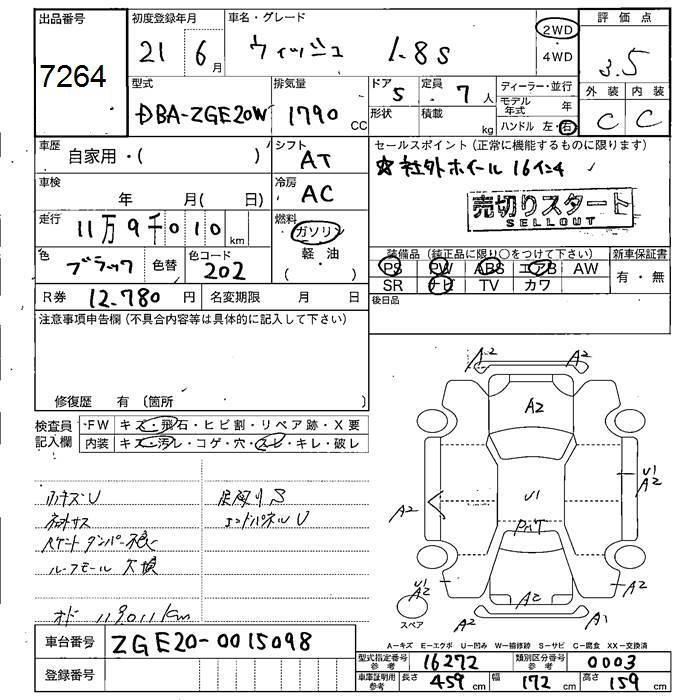 出品番号 初度登録年月 車名・グレード 評価点
7264 21 6月 ウィッシュ 1.8S 2WD 4WD 3.5
型式 排気量 ドア 5 定員 7人 ディーラー・並行 外装 内装
DBA-ZGE20W 1790 CC 形状 積載 kg モデル年式 年 C C
ハンドル 左・右
車歴 自家用・( ) シフト AT セールスポイント (正常に機能するものに限ります)
☆社外ホイール 16インチ
車検 年 月( 日) 冷房 AC
売切りスタート
SELLOUT
走行 11万9千010km 燃料 ガソリン 軽・油
色 ブラック 色替 色コード 202
装備品 (純正品に限り○をつけて下さい) 新車保証書
PS PW ABS エアB AW 有・無
SR ナビ TV カワ
R券 12.780円 名変期限 月 日 後日品
注意事項申告欄 (不具合内容等は具体的に記入して下さい)
修復歴 有 〔箇所 〕
検査員記入欄 FW キズ・飛石・ヒビ割・リペア跡・X要
内装 キズ・汚レ・コゲ・穴・スレ・キレ・破レ
A2 A2
A2
U1
A2
A2
U1
PAIT
U1
A2
A2
A2
A2 A1
スペア
小キズU 足廻りS
エンドパネルU
ルーフモール 欠損
オド 119011km
A-キズ E-エクボ U-凹み W-補修跡 S-サビ C-腐食 XX-交換済
車台番号 ZGE20-0015098
型式指定番号 参考 16272 類別区分番号 参考 0003
登録番号
車庫証明用 参考 長さ 459cm 幅 172cm 高さ 159cm